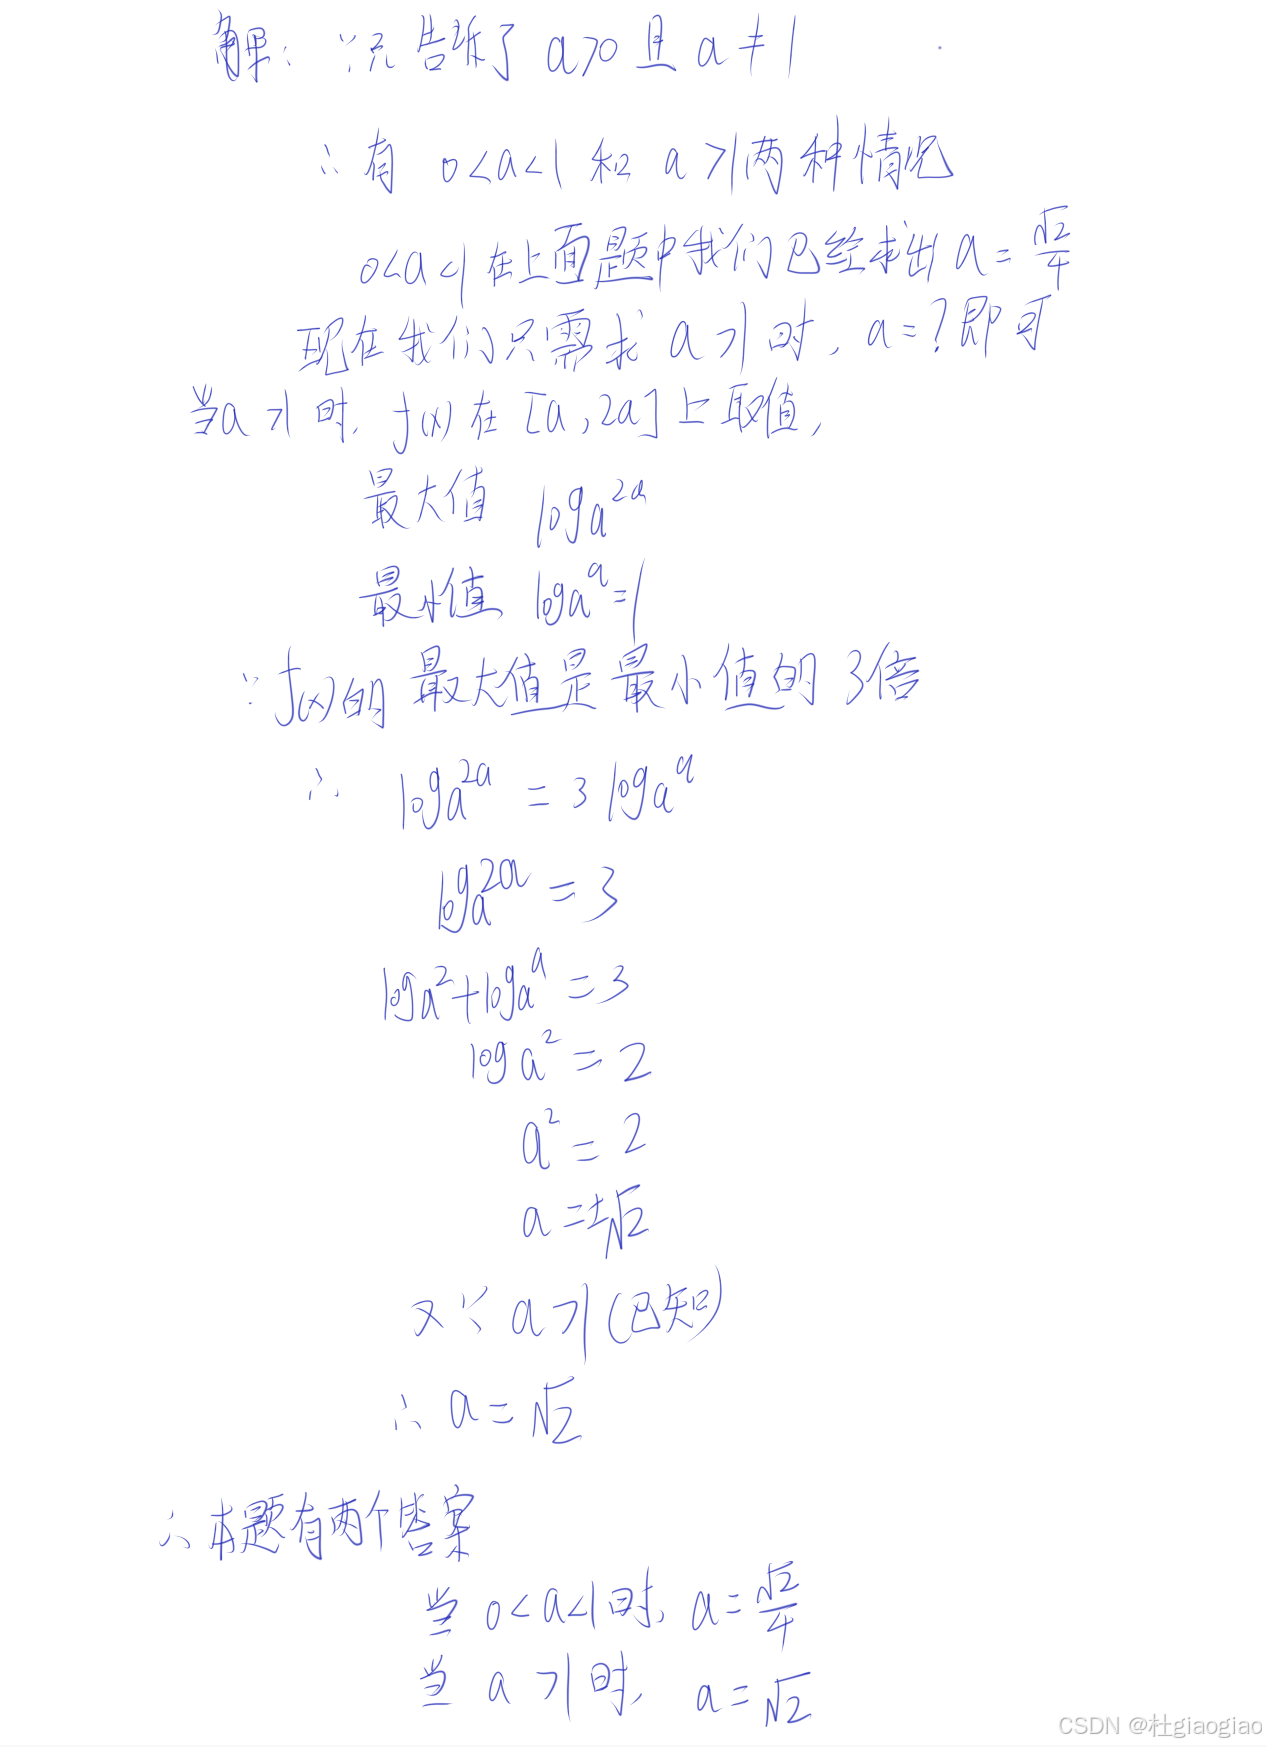 解：∵只告诉了 a>0 且 a≠1
∴有 0<a<1 和 a>1两种情况
0<a<1在上面题中我们已经求出 a=√2/4
现在我们只需求 a>1时，a=?即可
当a>1时，f(x)在[a,2a]上取值，
最大值 logₐ²ᵃ
最小值 logₐᵃ=1
∵f(x)的最大值是最小值的3倍
∴ logₐ²ᵃ = 3logₐᵃ
logₐ²ᵃ = 3
logₐ²+logₐᵃ = 3
logₐ² = 2
a² = 2
a=±√2
又∵ a>1(已知)
∴ a=√2
∴本题有两个答案
当 0<a<1时，a=√2/4
当 a>1时，a=√2
CSDN @杜giaogiao